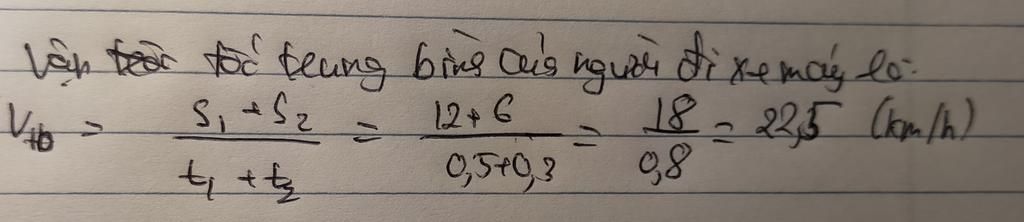 Vận tốc trung bình của người đi xe máy là:
V_tb = (S₁ + S₂)/(t₁ + t₂) = (12+6)/(0,5+0,3) = 18/0,8 = 22,5 (km/h)